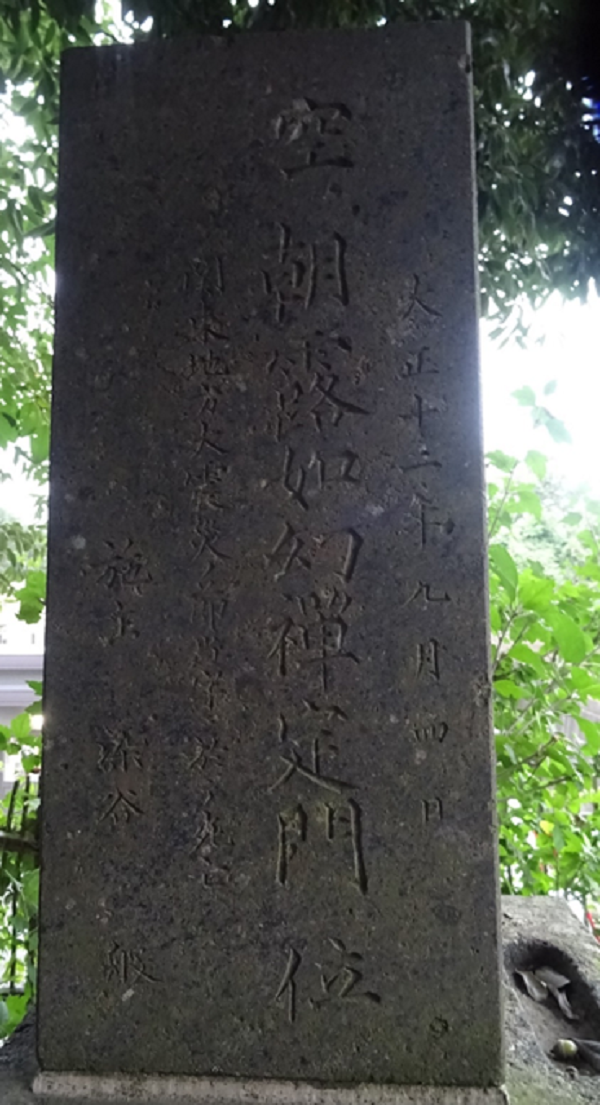 大正十二年九月四日
空 朝露如幻禪定門 位
関東地方大震災之節當字ニ於テ死亡
施主 染谷 般